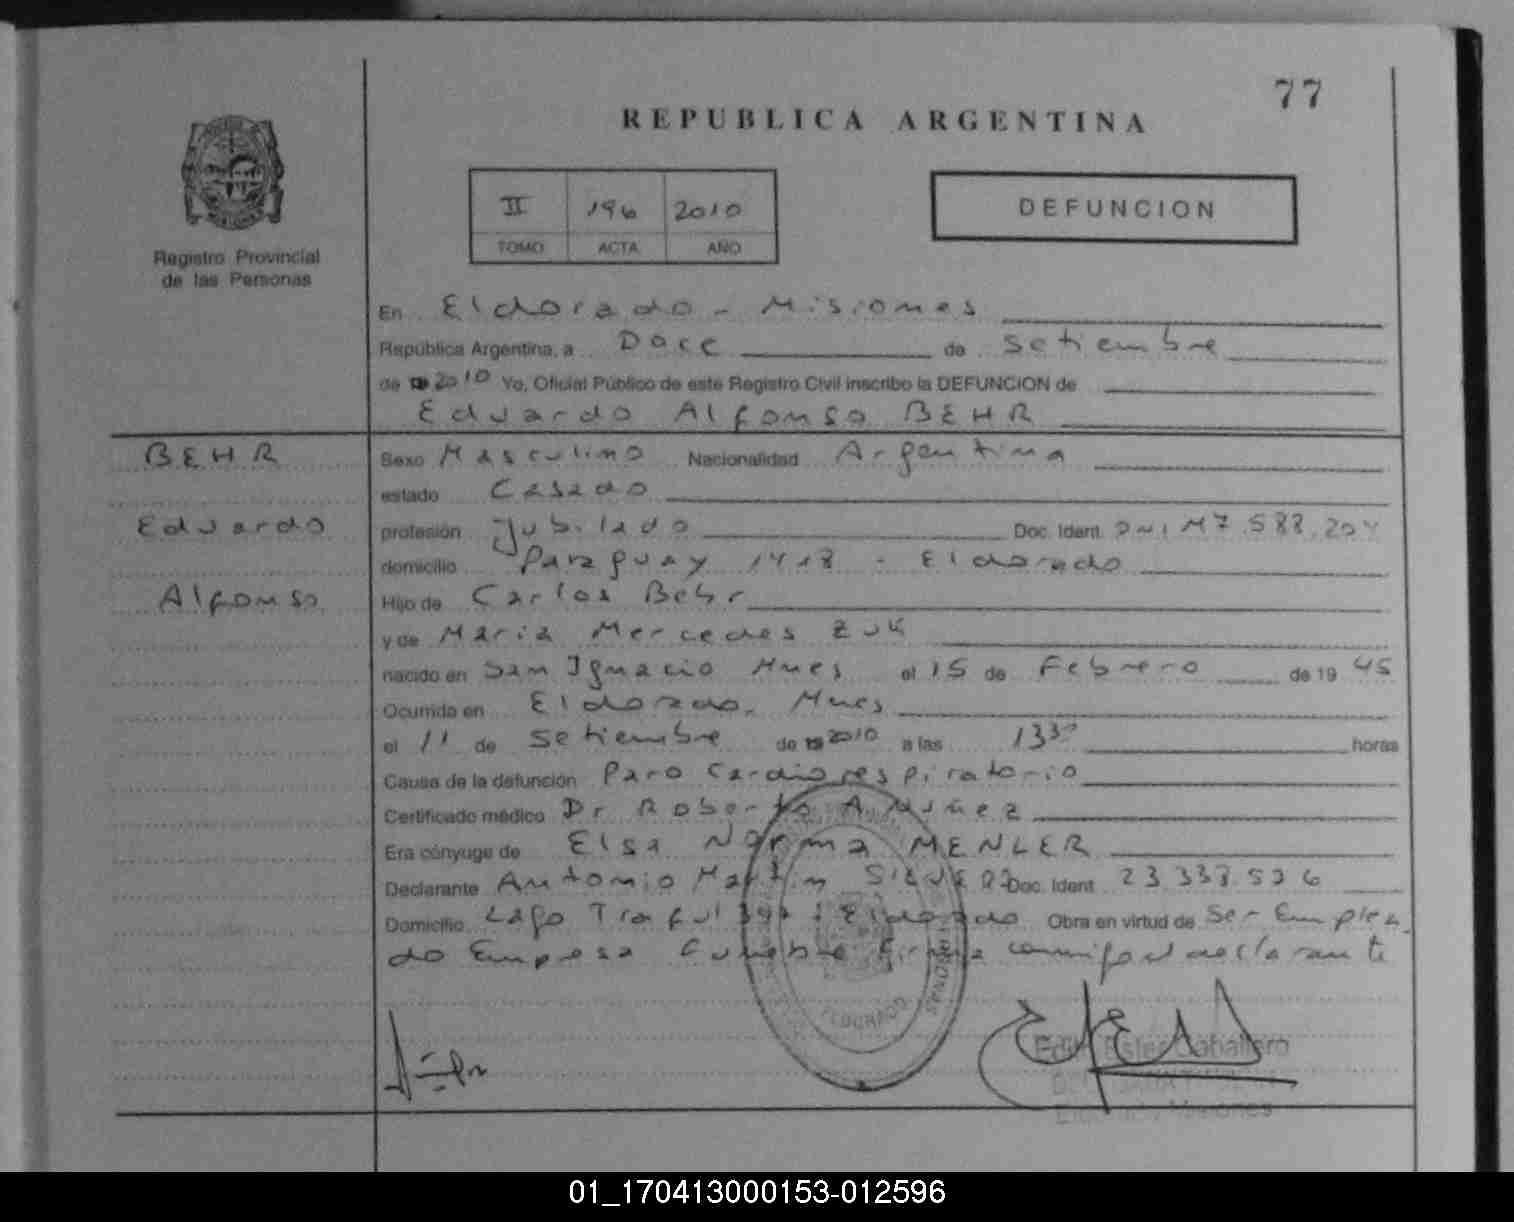 77
REPUBLICA ARGENTINA
Registro Provincial
de las Personas
II 196 2010
TOMO ACTA AÑO
DEFUNCION
En Eldorado - Misiones
República Argentina, a Doce de Setiembre
de 2010 Yo, Oficial Público de este Registro Civil inscribo la DEFUNCION de
Eduardo Alfonso BEHR
BEHR
Eduardo
Alfonso
Sexo Masculino Nacionalidad Argentina
estado Casado
profesión Jubilado Doc. Ident. DNI M7.588.204
domicilio Paraguay 1418 - Eldorado
Hijo de Carlos Behr
y de Maria Mercedes Zuk
nacido en San Ignacio Mnes el 15 de Febrero de 19 45
Ocurrida en Eldorado. Mnes
el 11 de Setiembre de 2010 a las 13 30 horas
Causa de la defunción Paro Cardiorespiratorio
Certificado médico Dr Roberto A Nuñez
Era cónyuge de Elsa Norma MENLER
Declarante Antonio Martin Doc. Ident. 23.338.526
Domicilio Lago Traful Eldorado Obra en virtud de Ser Emplea
do Empresa Funebre Firma conmigo el declarante
ELDORADO
MISIONES
Edith Ester Caballero
Eldorado, Misiones
01_170413000153-012596